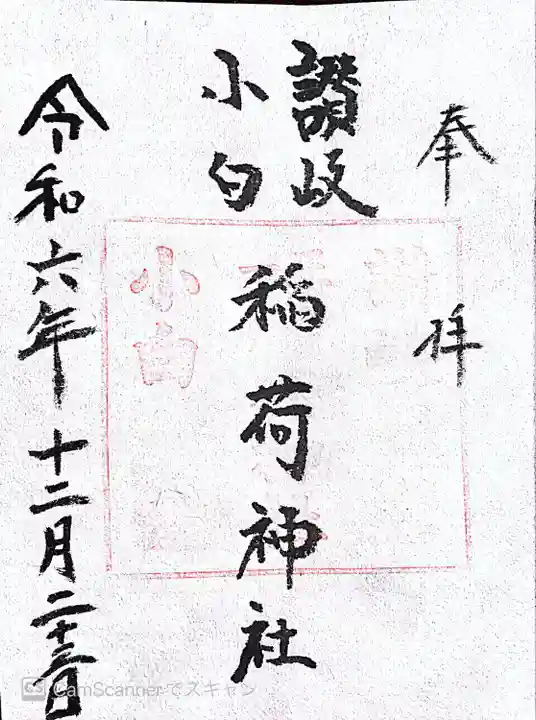 奉拝
讃岐
小白
稲荷神社
令和六年十二月二十二日
小白
CamScannerでスキャン